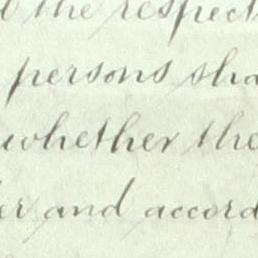 the respect
persons sha
whether the
er and accord